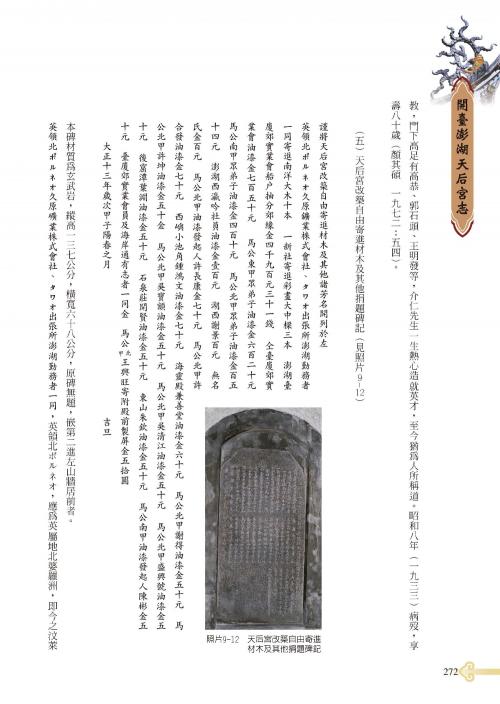 開臺澎湖天后宮志
教，門下高足有高恭、郭石頭、王明發等，介仁先生一生熱心造就英才，至今猶為人所稱道。昭和八年（一九三三）病歿，享
壽八十歲（顏其碩　一九七二：五四）。
（五）天后宮改築自由寄進材木及其他捐題碑記（見照片9-12）
謹將天后宮改築自由寄進材木及其他諸芳名開列於左
英領北ボルネオ久原鑛業株式會社、タワオ出張所澎湖勤務者
一同寄進南洋大木十本　一新社寄進彩畫大中樑三本　澎湖臺
廈郊實業會船户抽分郊緣金四千九百元三十一錢　仝臺廈郊實
業會油漆金七百五十元　馬公東甲眾弟子油漆金六百二十元
馬公南甲眾弟子油漆金四百十元　馬公北甲眾弟子油漆金百五
十四元　澎湖西瀛吟社員油漆金壹百元　湖西謝景百元　無名
氏金百元　馬公北甲油漆發起人許長庚金七十元　馬公北甲許
合發油漆金七十元　西嶼小池角鍾鴻文油漆金七十元　海靈殿兼善堂油漆金六十元　馬公北甲謝得油漆金五十元　馬
公北甲許坤油漆金五十金　馬公北甲吳實額油漆金五十元　馬公北甲吳清江油漆金五十元　馬公北甲盛興號油漆金五
十元　後窟潭葉闊油漆金五十元　石泉莊閑賢油漆金五十元　東山朱欽油漆金五十元　馬公南甲油漆發起人陳彬金五
十元　臺廈郊實業會員及海岸通有志者一同金　馬公北甲王興旺寄附殿前製屏金五拾圓
大正十三年歲次甲子陽春之月　吉旦
本碑材質為玄武岩，縱高一三七公分，橫寬六十八公分，原碑無題，嵌第二進左山牆居前者。
英領北ボルネオ久原礦業株式會社、タワオ出張所澎湖勤務者一同，英領北ボルネオ，應為英屬地北婆羅洲，即今之汶萊
照片9-12　天后宮改築自由寄進
材木及其他捐題碑記
272